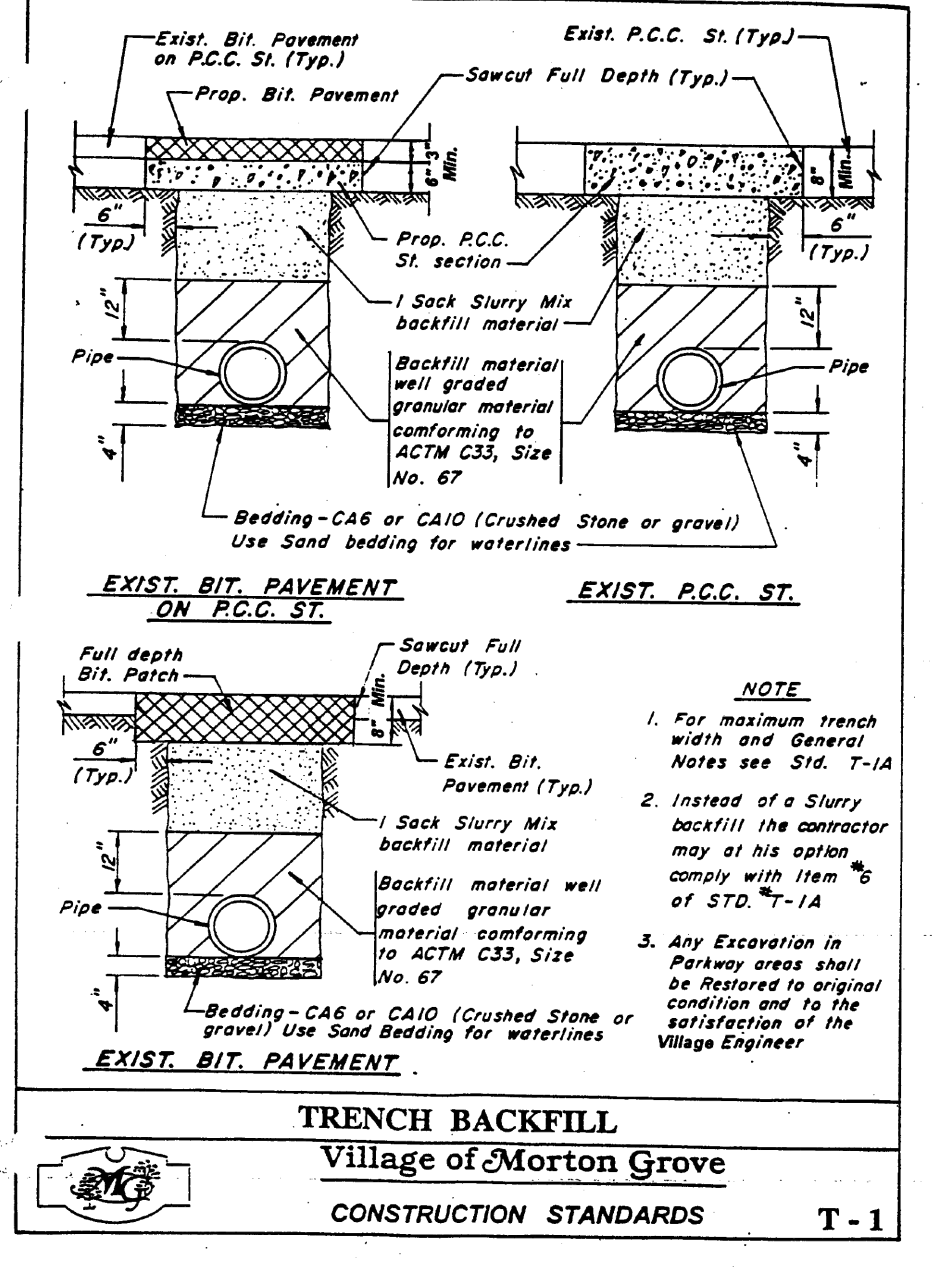 Exist. Bit. Pavement
on P.C.C. St. (Typ.)
Prop. Bit. Pavement
Exist. P.C.C. St. (Typ.)
Sawcut Full Depth (Typ.)
3"
6"
Min.
8"
Min.
6"
(Typ.)
6"
(Typ.)
Prop. P.C.C.
St. section
1 Sack Slurry Mix
backfill material
12"
12"
Pipe
Pipe
Backfill material
well graded
granular material
comforming to
ACTM C33, Size
No. 67
4"
4"
Bedding-CA6 or CA10 (Crushed Stone or gravel)
Use Sand bedding for waterlines
EXIST. BIT. PAVEMENT
ON P.C.C. ST.
EXIST. P.C.C. ST.
Full depth
Bit. Patch
Sawcut Full
Depth (Typ.)
8" Min.
6"
(Typ.)
Exist. Bit.
Pavement (Typ.)
1 Sack Slurry Mix
backfill material
12"
Pipe
Backfill material well
graded granular
material comforming
to ACTM C33, Size
No. 67
4"
Bedding-CA6 or CA10 (Crushed Stone or
gravel) Use Sand Bedding for waterlines
EXIST. BIT. PAVEMENT
NOTE
1. For maximum trench
width and General
Notes see Std. T-1A
2. Instead of a Slurry
backfill the contractor
may at his option
comply with Item #6
of STD. #T-1A
3. Any Excavation in
Parkway areas shall
be Restored to original
condition and to the
satisfaction of the
Village Engineer
TRENCH BACKFILL
MG
Village of Morton Grove
CONSTRUCTION STANDARDS
T - 1